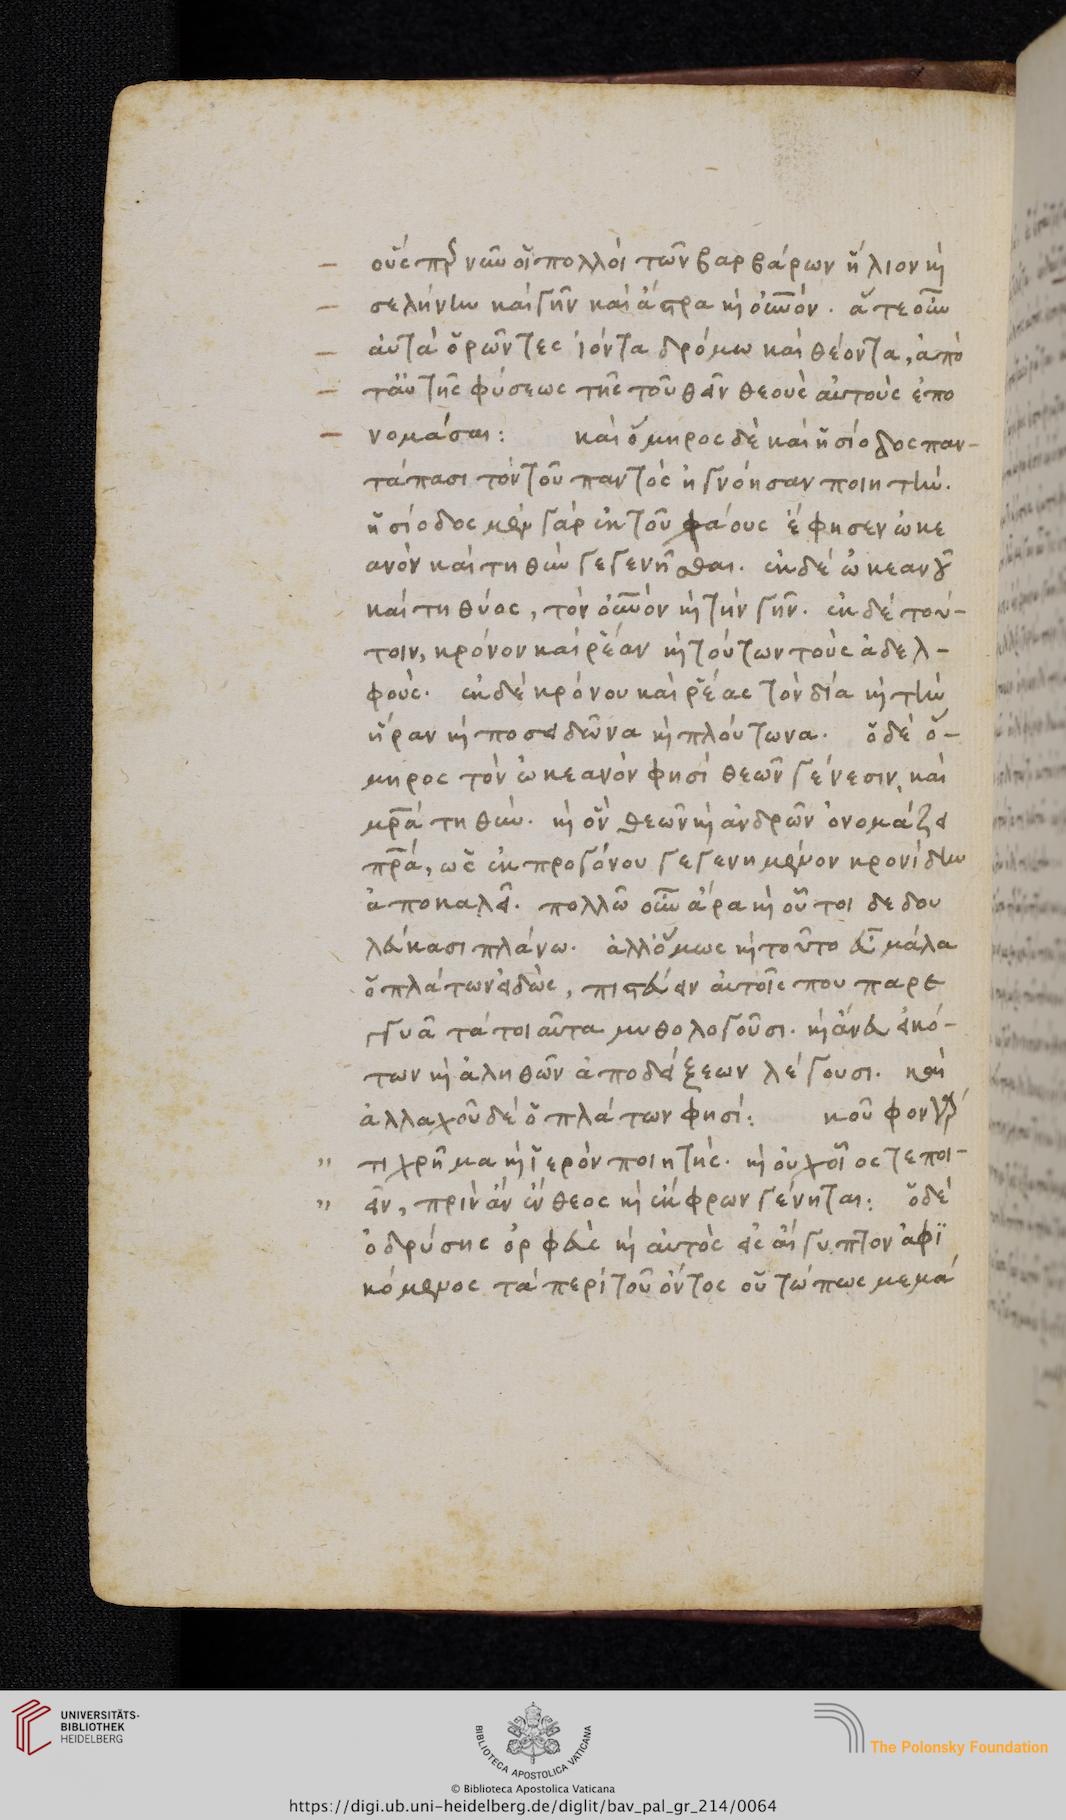 οὕς περ νῦν οἱ πολλοὶ τῶν βαρβάρων ἥλιον καὶ
σελήνην καὶ γῆν καὶ ἄστρα καὶ οὐνόν. ἅτε οὖν
αὐτὰ ὁρῶντες ἰόντα δρόμω καὶ θέοντα, ἀπὸ
ταύτης φύσεως τῆς τοῦ θεῖν θεοὺς αὐτοὺς ἐπο
νομάσαι: καὶ ὅμηρος δὲ καὶ ἡσίοδος παν-
τάπασι τὸν τοῦ παντὸς ἠγνόησαν ποιητήν.
ἡσίοδος μὲν γὰρ ἐκ τοῦ φάους ἔφησεν ὠκε
ανὸν καὶ τηθὺν γεγενῆσθαι. ἐκ δὲ ὠκεανοῦ
καὶ τηθύος, τὸν οὐνὸν καὶ τὴν γῆν. ἐκ δὲ τού-
τοιν, κρόνον καὶ ῥέαν καὶ τούτων τοὺς ἀδελ-
φούς. ἐκ δὲ κρόνου καὶ ῥέας τὸν δία καὶ τὴν
ἥραν καὶ ποσειδῶνα καὶ πλούτωνα. ὁ δὲ ὅ-
μηρος τὸν ὠκεανὸν φησὶ θεῶν γένεσιν, καὶ
μρά τηθύν. καὶ ὃν θεῶν καὶ ἀνδρῶν ὀνομάζει
πρά, ὡς ἐκ προγόνου γεγενημένον κρονίδην
ἀποκαλεῖ. πολλῶ οὖν ἄρα καὶ οὗτοι δεδου
λεύκασι πλάνω. ἀλλ' ὅμως καὶ τοῦτο εὖ μάλα
ὁ πλάτων εἰδὼς, πιστεύειν αὐτοῖς που παρε
γγυᾶ τὰ τοιαῦτα μυθολογοῦσι. καὶ ἄνευ εἰκό-
των καὶ ἀληθῶν ἀποδείξεων λέγουσι. καὶ
ἀλλαχοῦ δὲ ὁ πλάτων φησί: κοῦφον γάρ
" τι χρῆμα καὶ ἱερὸν ποιητής. καὶ οὐχ οἷός τε ποι-
" εῖν, πρὶν ἂν ἔνθεος καὶ ἔκφρων γένηται: ὁ δὲ
ὀδρύσης ὀρφεὺς καὶ αὐτὸς εἰς αἴγυπτον ἀφϊ
κόμενος τὰ περὶ τοῦ ὄντος οὕτώ πως μεμά
UNIVERSITÄTS-
BIBLIOTHEK
HEIDELBERG
BIBLIOTECA APOSTOLICA VATICANA
The Polonsky Foundation
© Biblioteca Apostolica Vaticana
https://digi.ub.uni-heidelberg.de/diglit/bav_pal_gr_214/0064